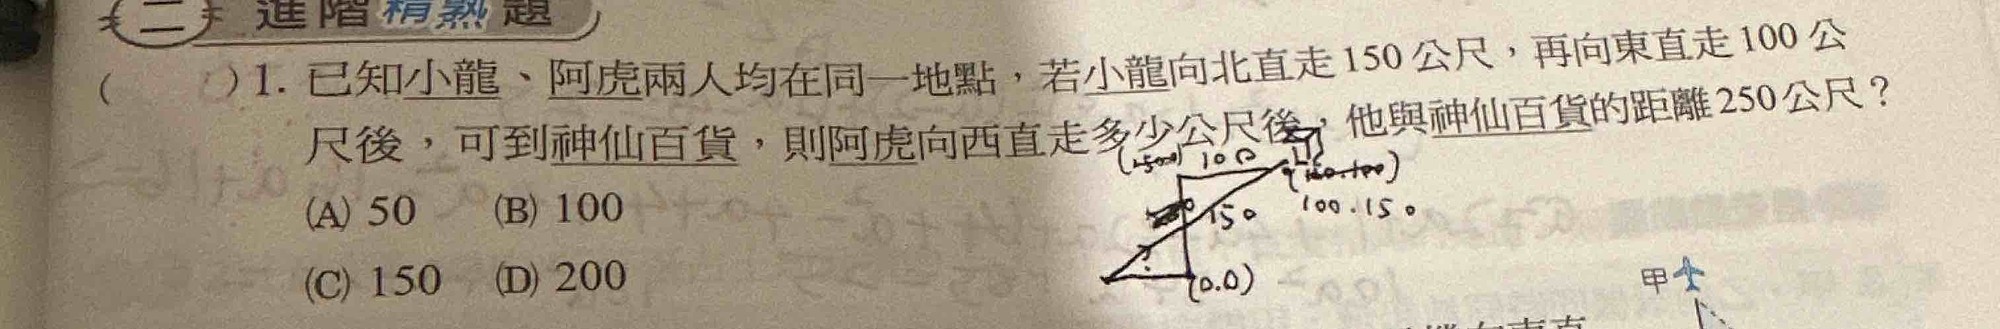 二 進階精熟題
( ) 1. 已知小龍、阿虎兩人均在同一地點，若小龍向北直走150公尺，再向東直走100公
尺後，可到神仙百貨，則阿虎向西直走多少公尺後，他與神仙百貨的距離250公尺？
(A) 50 (B) 100
(C) 150 (D) 200
100
150
100.150
?
(0.0)
甲